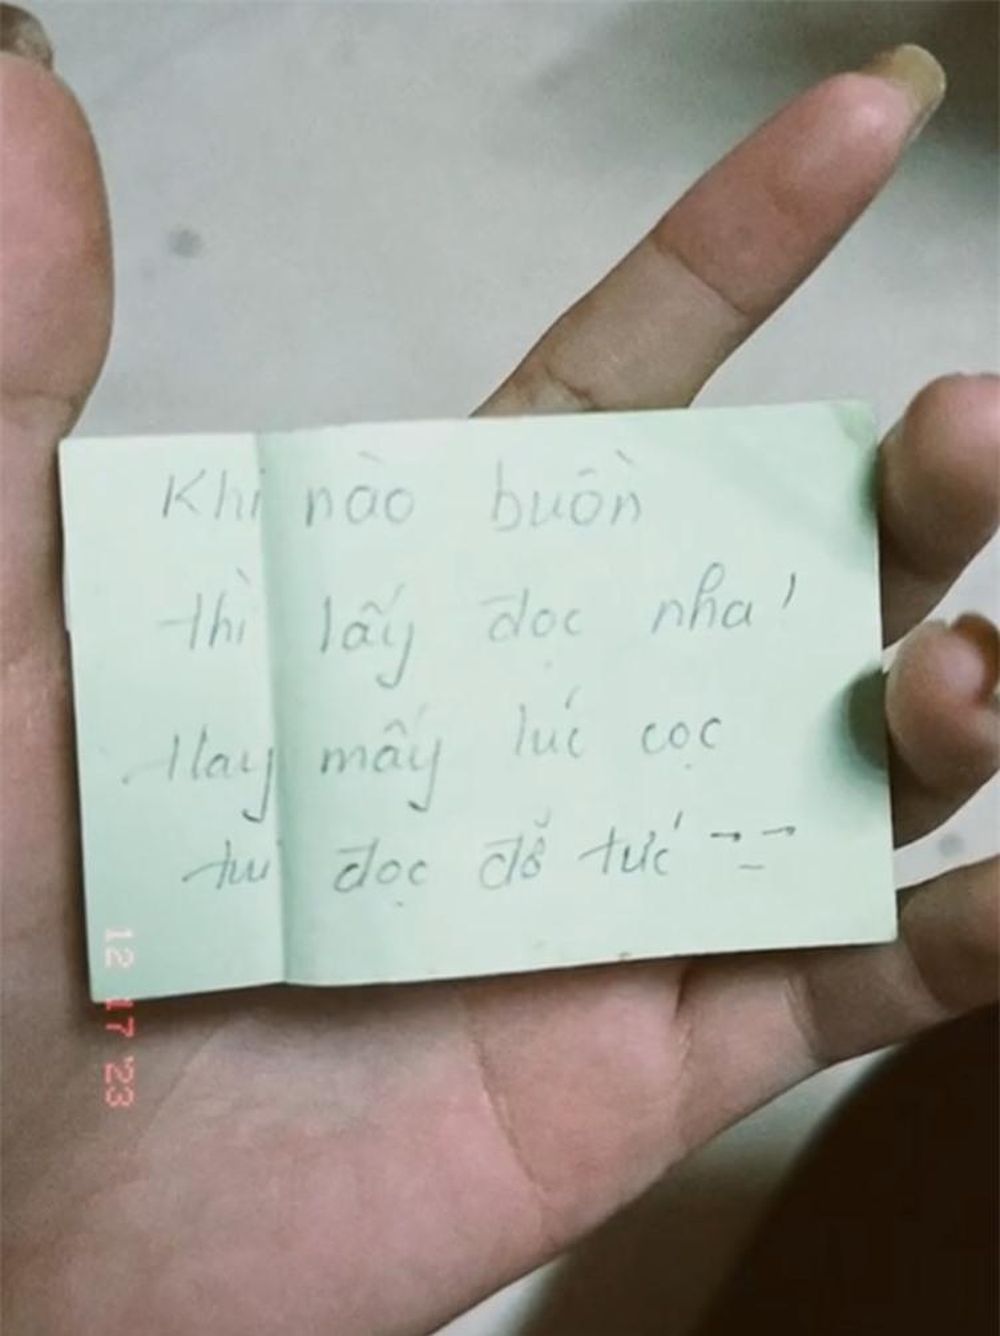 Khi nào buồn
thì lấy đọc nha!
Hay mấy lúc cọc
tui đọc đỡ tức ¬_¬
12 17 '23